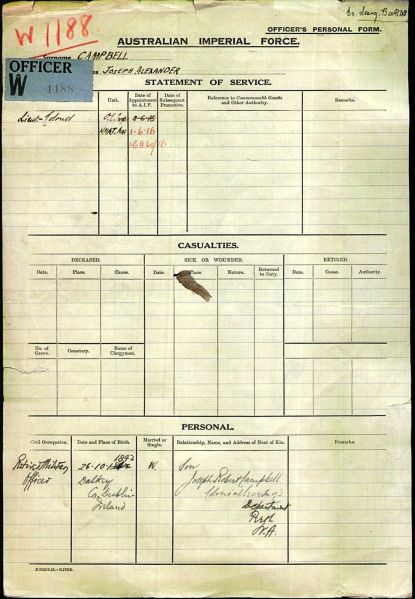 W 1188.
OFFICER'S PERSONAL FORM.
AUSTRALIAN IMPERIAL FORCE.
Surname CAMPBELL
OFFICER
W 1188
JOSEPH ALEXANDER
STATEMENT OF SERVICE.
Unit. Date of Appointment to A.I.F. Date of Subsequent Promotion. Reference to Commonwealth Gazette and Other Authority. Remarks.
Lieut-Colonel
1-6-16
CASUALTIES.
DECEASED. SICK OR WOUNDED. RETIRED.
Date. Place. Cause. Date. Place. Nature. Returned to Duty. Date. Cause. Authority.
No. of Grave. Cemetery. Name of Clergyman.
PERSONAL.
Civil Occupation. Date and Place of Birth. Married or Single. Relationship, Name, and Address of Next of Kin. Remarks.
Retired Military Officer
26-10-
Dalkey
Co. Dublin
Ireland
W.
Son
Joseph Robert Campbell
Department
Perth
W.A.